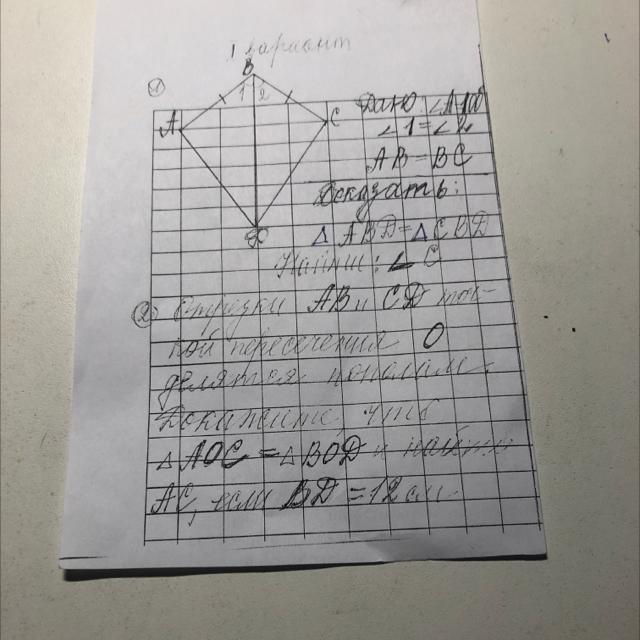 I вариант
1
B
1 2
A
C
D
Дано
∠1=∠2
AB=BC
Доказать:
△ABD=△CBD
Найти: ∠C
2 Отрезки AB и CD точ-
кой пересечения O
делятся пополам.
Докажите, что
△AOC=△BOD и найти
AC, если BD=12 см